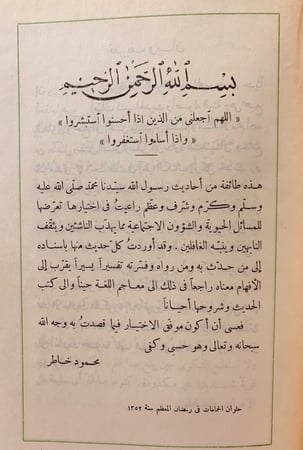 بسم الله الرحمن الرحيم
« اللهم اجعلنى من الذين إذا أحسنوا استبشروا »
« وإذا أساءوا استغفروا »
هذه طائفة من أحاديث رسول الله سيدنا محمد صلى الله عليه
وسلم وكرم وشرف وعظم راعيت فى اختيارها تعرضها
للمسائل الحيوية والشؤون الاجتماعية مما يهذب الناشئين ويثقف
النابهين وينبه الغافلين . وقد أوردت كل حديث منها باسناده
إلى من حدث به ومن رواه وفسرته تفسيرا يسيرا يقرب إلى
الأفهام معناه راجعا فى ذلك الى معاجم اللغة حينا والى كتب
الحديث وشروحها أحيانا
فعسى أن أكون موفق الاختيار فيما قصدت به وجه الله
سبحانه وتعالى وهو حسبى وكفى
محمود خاطر
حلوان الحمامات فى رمضان المعظم سنة ١٣٥٢